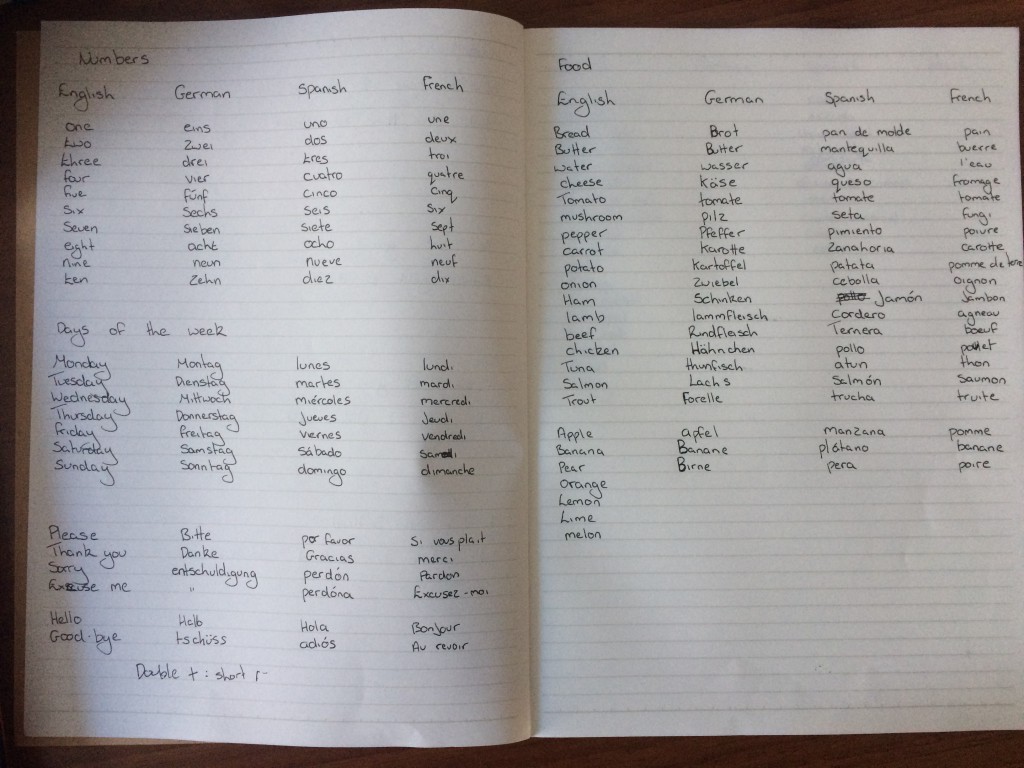 Numbers
English German Spanish French
one eins uno une
two zwei dos deux
three drei tres troi
four vier cuatro quatre
five fünf cinco cinq
six sechs seis six
seven sieben siete sept
eight acht ocho huit
nine neun nueve neuf
ten zehn diez dix
Days of the week
Monday Montag lunes lundi
Tuesday Dienstag martes mardi
Wednesday Mittwoch miércoles mercredi
Thursday Donnerstag jueves jeudi
friday freitag viernes vendredi
Saturday Samstag sábado
Sunday Sonntag domingo dimanche
Please Bitte por favor Si vous plait
Thank you Danke Gracias merci
Sorry entschuldigung perdón Pardon
Excuse me " perdóna Excusez-moi
Hello Hallo Hola Bonjour
Good-bye tschüss adiós Au revoir
Double t : short
Food
English German Spanish French
Bread Brot pan de molde pain
Butter Butter mantequilla buerre
water wasser agua l'eau
cheese Käse queso fromage
Tomato tomate tomate tomate
mushroom pilz seta fungi
pepper Pfeffer pimiento poivre
carrot Karotte zanahoria carotte
potato Kartoffel patata pomme de terre
onion zwiebel cebolla oignon
Ham Schinken Jamón Jambon
lamb lammfleisch Cordero agneau
beef Rindfleisch Ternera boeuf
chicken Hähnchen pollo poulet
Tuna thunfisch atun thon
Salmon Lachs Salmón Saumon
Trout Forelle trucha truite
Apple apfel manzana pomme
Banana Banane plátano banane
Pear Birne pera poire
Orange
Lemon
Lime
melon